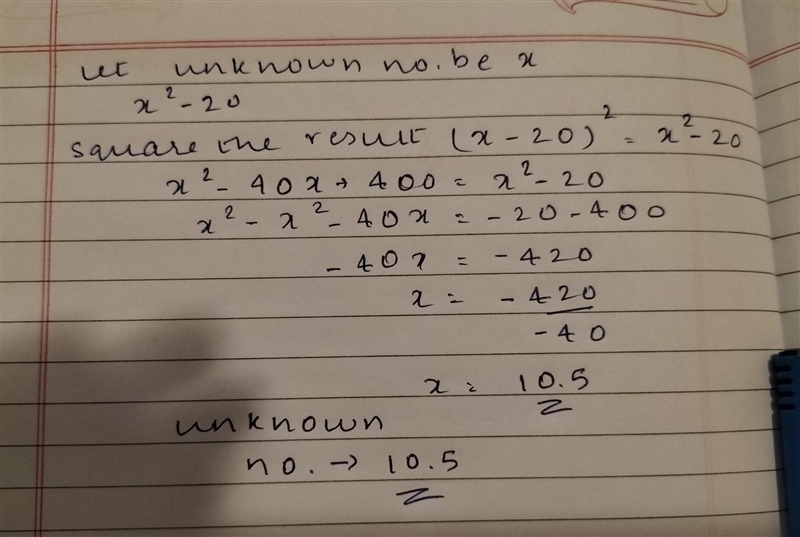 Let unknown no. be x
x² - 20
square the result (x - 20)² = x² - 20
x² - 40x + 400 = x² - 20
x² - x² - 40x = - 20 - 400
- 40x = - 420
x = - 420
- 40
x = 10.5
unknown
no. → 10.5